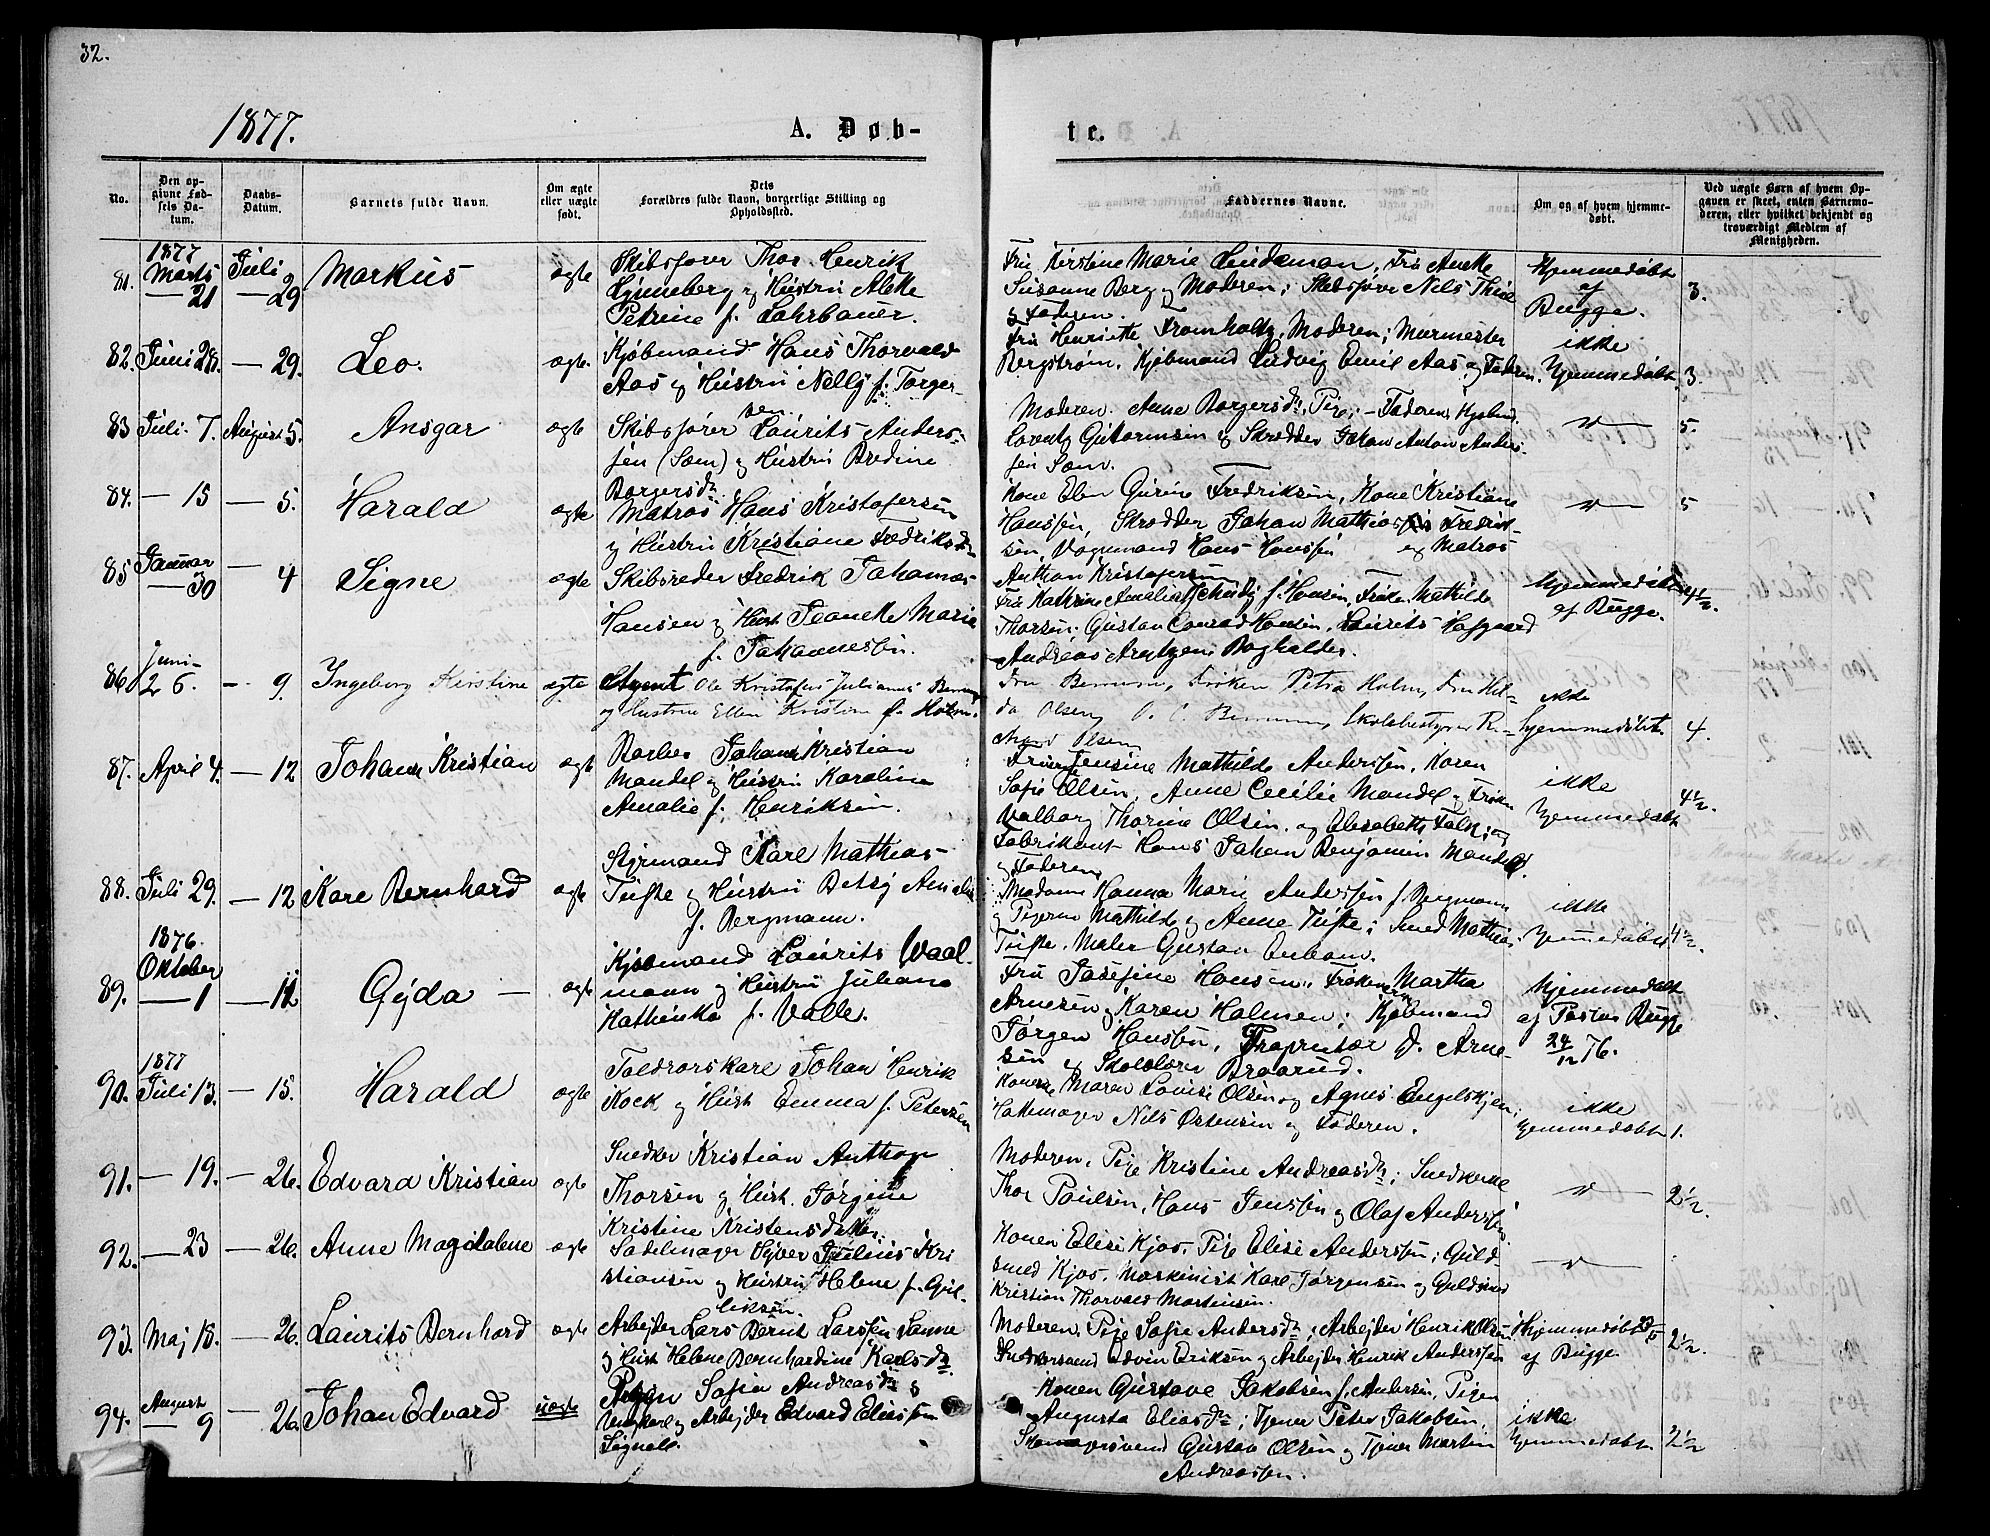 32.
1877.
A. Døb-
te.
No.
Den opgivne Fødsels Datum.
Daabs-Datum.
Barnets fulde Navn.
Om ægte eller uægte født.
Dets Forældres fulde Navn, borgerlige Stilling og Opholdsted.
Faddernes Navne.
Om og af hvem hjemmedøbt.
Ved uægte Børn af hvem Opgaven er skeet, enten Barnemoderen, eller hvilket bekjendt og troværdigt Medlem af Menigheden.
81. 1877 Marts 21 Juli 29 Markus ægte
Skibsfører Thor Henrik
Kynneberg og Hustru Aleke
Petrine f. Lahrbauer.
Fru Kirstine Marie Lindeman, Frk Aneke
Susanne Berg og Moderen; Skibsfører Nils Thue
og Faderen.
Hjemmedøbt
af
Bugge.
3.
82. Juni 28. — 29. Leo. ægte.
Kjøbmand Hans Thorvald
Aas og Hustru Nelly f. Torger-
sen.
Fru Henriette Fromholtz, Moderen; Murmester
Bergstrøm, Kjøbmand Ludvig Emil Aas og Faderen.
ikke
hjemmedøbt.
3.
83 Juli 7. August 5. Ansgar ægte
Skibsfører Laurits Anders-
sen (Sæm) og Hustru Bredine
Borgersdr
Moderen. Anne Borgersdr, Pige; — Faderen,
Lorentz Gutormsen og Skrædder Johan Anton Anders-
sen Sæm.
5.
84. — 15 — 5. Harald ægte
Matros Hans Kristofersen
og Hustru Kristiane Fredriksdr
Kone Elen Gurine Fredriksen, Kone Kristiane
Hanssen, Skrædder Johan Mathias Fredrik-
sen, Vognmand Hans Hanssen og Matros
Anthon Kristofersen
5
85 Januar 30 — 4 Signe ægte
Skibsreder Fredrik Johannes
Hansen og Hust Jeaneke Marie
f. Johannesen.
Fru Kathrine Amalie f. Hansen, Frøken Mathilde
Thorsen; Gustav Conrad Hansen, Laurits Hafgaard
Andreas Arntzen Bogholder.
hjemmedøbt
af Bugge.
4½.
86 Juni 26. — 9 Ingeborg Kirstine ægte
Agent Ole Kristofus Julianus
og Hustru Ellen Kristine f. Holm.
Fru Frøken Petra Holm, Fru Hil-
da Olsen, O. C. Skolebestyrer Ri-
chard Olsen
ikke
hjemmedøbt
4.
87. April 4. — 12 Johan Kristian ægte
Barber Johan Kristian
Mandel og Hustru Karoline
Amalie f. Henriksen.
Fruerne Jensine Mathilde Anderssen, Karen
Sofie Olsen, Anne Cecilie Mandel og Frøken
Valborg Thorine Olsen og Elisabeth Falk; og
Fabrikant Hans Johan Benjamin Mandel
og Faderen
ikke
hjemmedøbt
4½.
88. Juli 29. — 12 Karl Bernhard ægte
Styrmand Karl Mathias
Tufte og Hustru Betsy Amalie
f. Bergmann.
Madame Hanna Marie Anderssen f. Bergmann
og Pigerne Mathilde og Anne Tufte; Smed Mathias
Tufte. Maler Gustav
ikke
hjemmedøbt
4½.
89. 1876. Oktober 1 — 12 Gyda — ægte
Kjøbmand Laurits Waal-
mann og Hustru Juliane
Kathinka f. Valle.
Fru Josefine Hansen, Frøkenerne Martha
Arnesen og Karen Holmen; Kjøbmand
Jørgen Hanssen, Proprietær D. Arne-
sen og Skolelærer Braarud.
hjemmedøbt
af Pastor Bugge
24/12 76.
90. 1877 Juli 13. — 15. Harald ægte
Toldrorskarl Johan Henrik
Kock og Hust Emma f. Petersen
Konerne Maren Louise Olsen og Agnes Engelskjøn;
Hattemager Nils Østensen og Faderen.
ikke
hjemmedøbt
1.
91. — 19. — 26. Edvard Kristian ægte
Snedker Kristian Anthon
Thorsen og Hust. Jørgine
Kristine Kristensdatter
Moderen, Pige Kristine Andreasdr; Snedkerne
Thor Poulsen, Hans Jenssen og Olaf Anderssen
2½.
92. — 23 — 26. Anne Magdalene ægte
Sadelmager Syver Julius Kri-
stiansen og Hustru Helene f. Gul-
liksen.
Konen Elise Kjos, Pige Elise Anderssen; Guld-
smed Kjos. Maskinist Karl Jørgensen og Guldsmed
Kristian Thorvald Martinsen.
93. Maj 18. — 26. Laurits Bernhard ægte
Arbejder Lars Bernt Larssen Sanne
og Hust Helene Bernhardine Karlsdr.
Moderen, Pige Sofie Andersdr; Arbejder Henrik Olsen,
Edvin Eriksen og Arbejder Henrik Anderssen
hjemmedøbt
af Bugge
2½.
94. August 9 — 26. Johan Edvard uægte
Pigen Sofie Andreasdr
Ungkarl og Arbejder Edvard Eliassen
Konen Gustave Jakobsen f. Andersen, Pigen
Augusta Eliasdr; Tjener Peter Jakobsen,
Gustav Olsen og Tjener Martin
Andreassen.
ikke
hjemmedøbt
2½